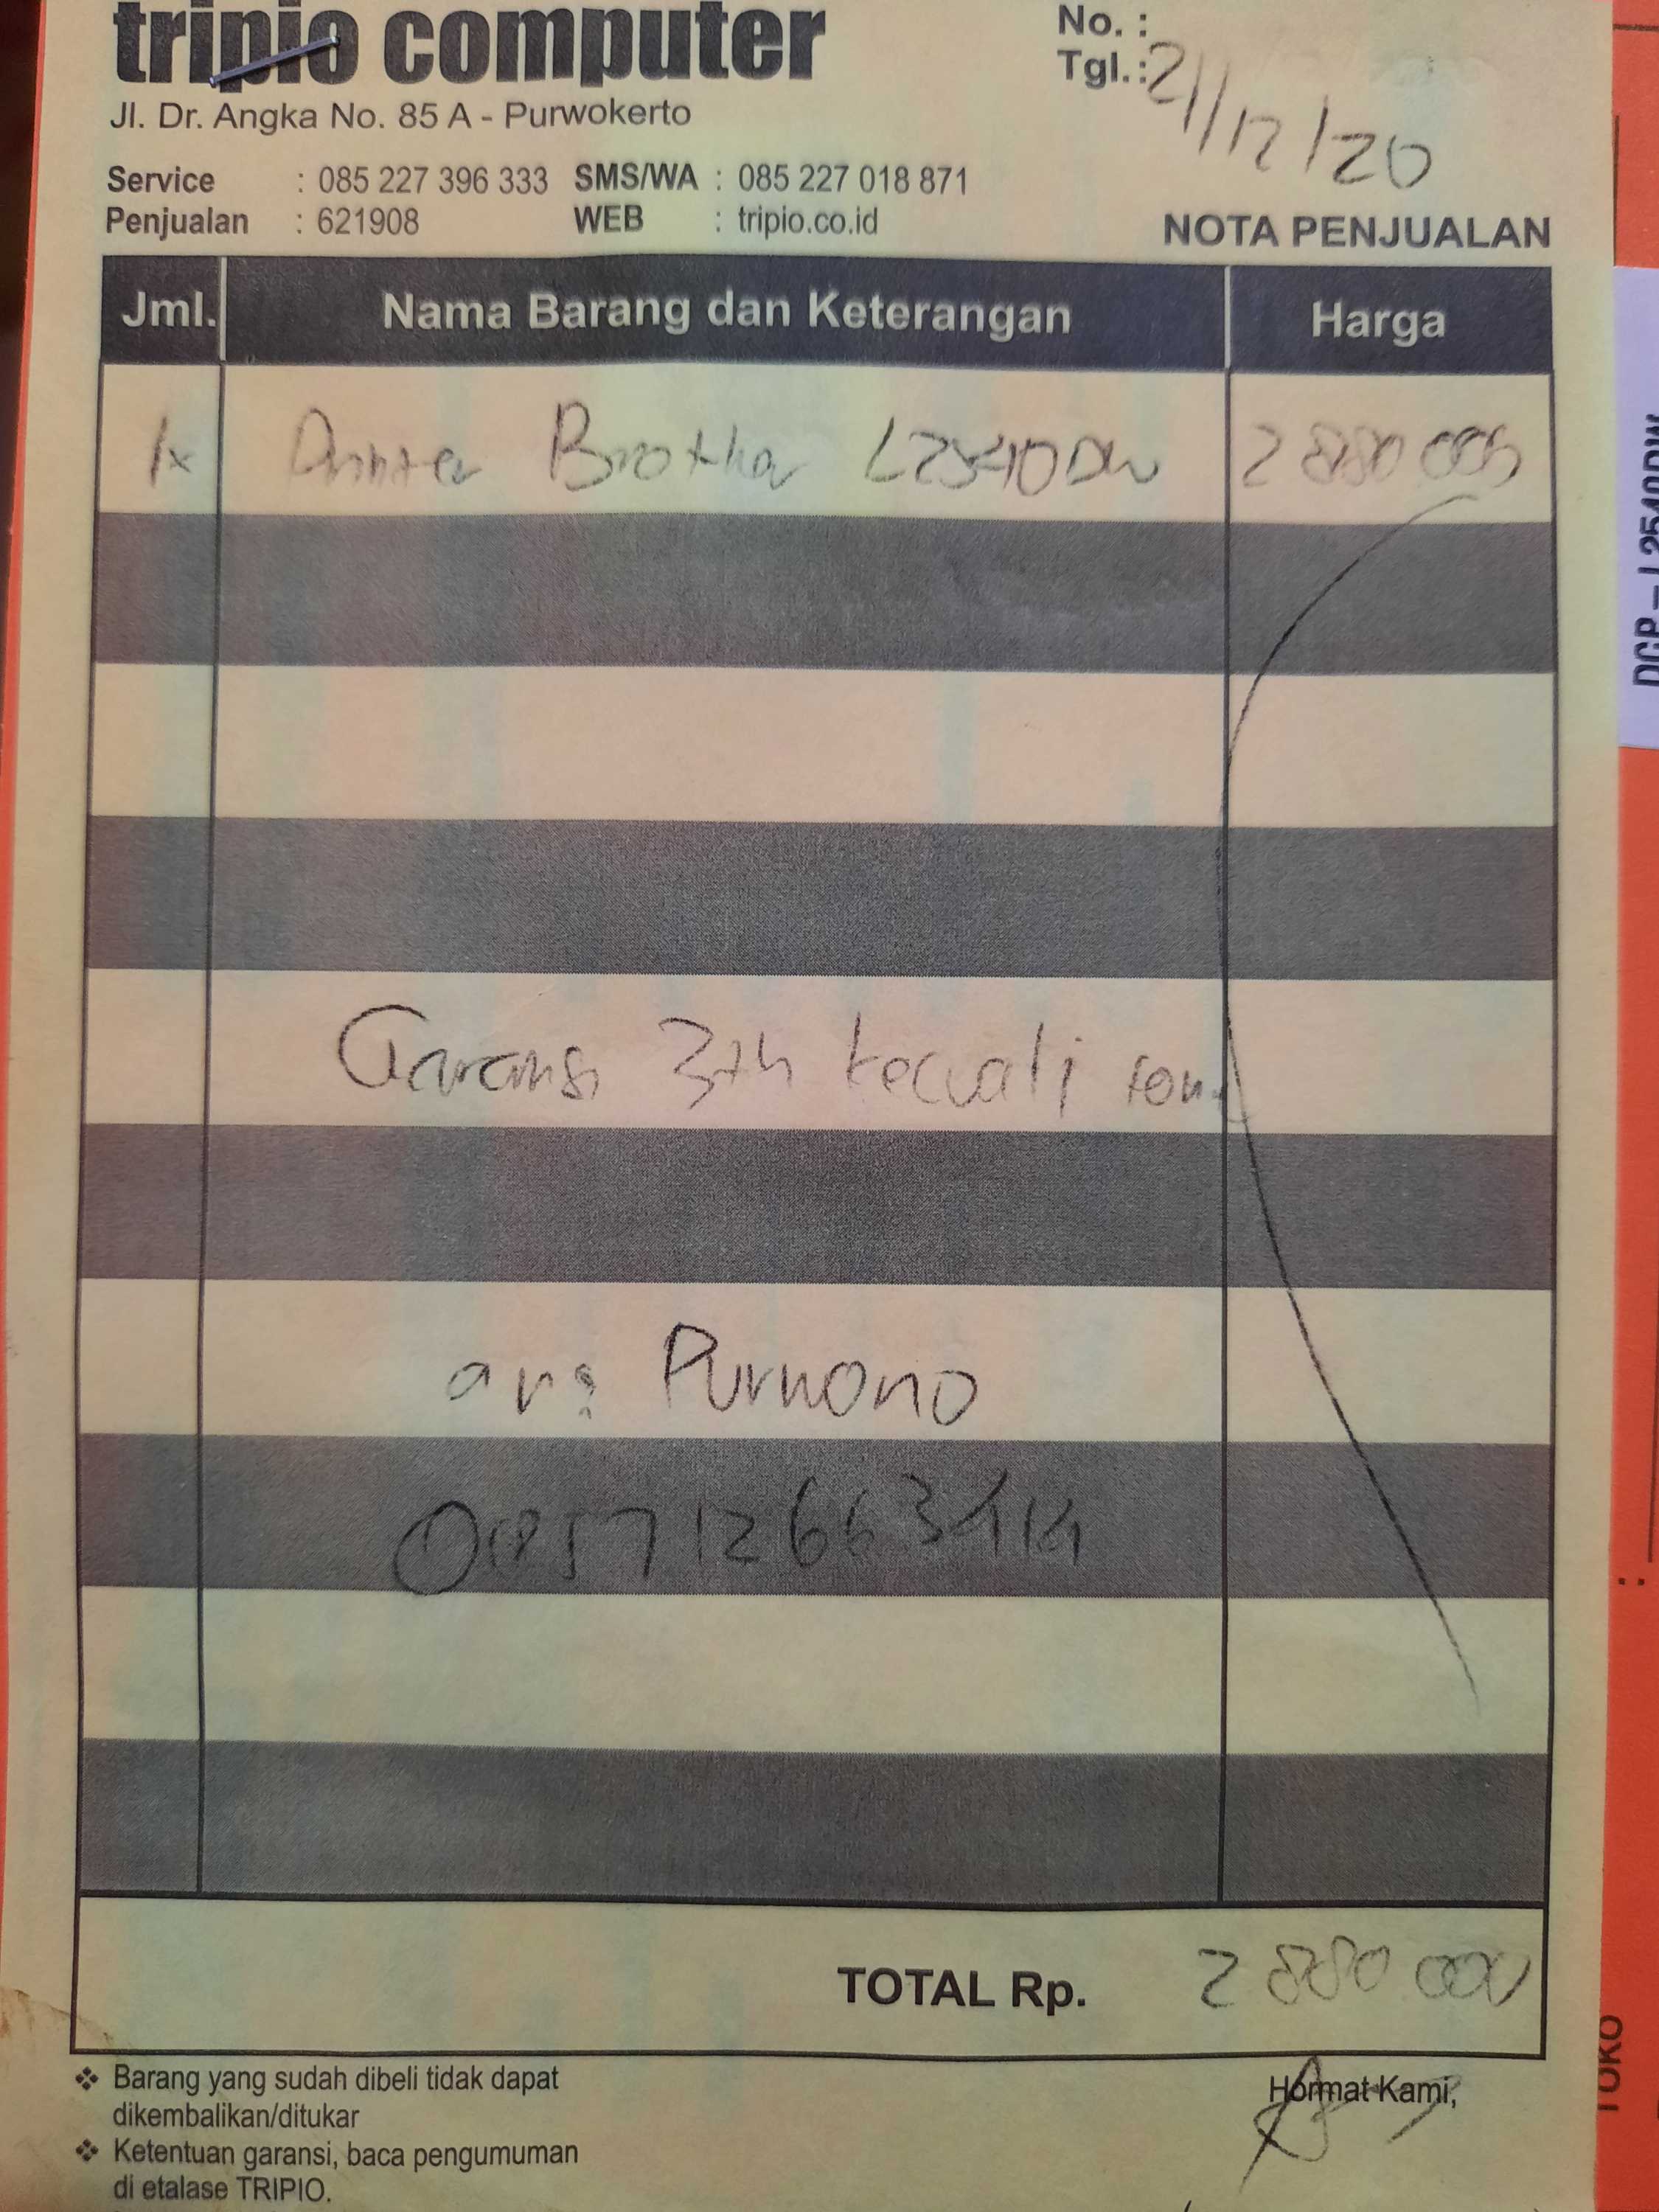 tripio computer
Jl. Dr. Angka No. 85 A - Purwokerto
Service : 085 227 396 333 SMS/WA : 085 227 018 871
Penjualan : 621908 WEB : tripio.co.id
No. :
Tgl. : 21/12/20
NOTA PENJUALAN
Jml. Nama Barang dan Keterangan Harga
1x Printer Brother L2540DW 2880 000
Garansi 3th kecuali
Purwono
TOTAL Rp. 2 880 000
❖ Barang yang sudah dibeli tidak dapat
dikembalikan/ditukar
❖ Ketentuan garansi, baca pengumuman
di etalase TRIPIO.
Hormat Kami,
DCP-L2540DW
TOKO
: